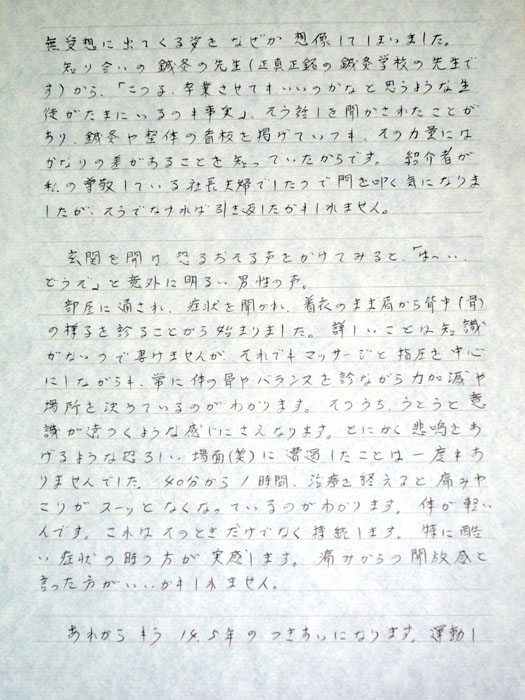 無愛想に出てくる姿をなぜか想像してしまいました。
知り合いの鍼灸の先生(正真正銘の鍼灸学校の先生で
す)から、「こいつを卒業させてもいいのかなと思うような生
徒がたまにいるのも事実」、そう話しを聞かされたことが
あり、鍼灸や整体の看板を掲げていても、その力量には
かなりの差があることを知っていたからです。紹介者が
私の尊敬している社長夫婦でしたので門を叩く気になりま
したが、そうでなければ引き返したかもしれません。
玄関を開け、恐るおそる声をかけてみると、「は〜い、
どうぞ」と意外に明るい男性の声。
部屋に通され、症状を聞かれ、着衣のまま肩から背中(骨)
の様子を診ることから始まりました。詳しいことは知識
がないので書けませんが、それでもマッサージと指圧を中心
にしながらも、常に体の骨やバランスを診ながら力加減や
場所を決めているのがわかります。そのうち、うとうと意
識が遠のくような感じにさえなります。とにかく悲鳴をあ
げるような恐ろしい場面(笑)に遭遇したことは一度もあ
りませんでした。40分から1時間、治療を終えると痛みや
こりがスーッとなくなっているのがわかります。体が軽い
んです。これはそのときだけでなく持続します。特に酷
い症状の時の方が実感します。痛みからの開放感と
言った方がいいかもしれません。
あれからもう14,5年のつきあいになります。運動し